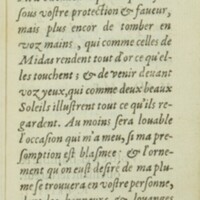 sous vostre protection & faueur,
mais plus encor de tomber en
voz mains, qui comme celles de
Midas rendent tout d'or ce qu'el-
les touchent; & de venir deuant
voz yeux, qui comme deux beaux
Soleils illustrent tout ce qu'ils re-
gardent. Au moins sera louable
l'occasion qui m'a meu, si ma pre-
somption est blasmee: & l'orne-
ment qu'on eust desiré de ma plu-
me se trouuera en vostre personne,
les honneurs & louanges